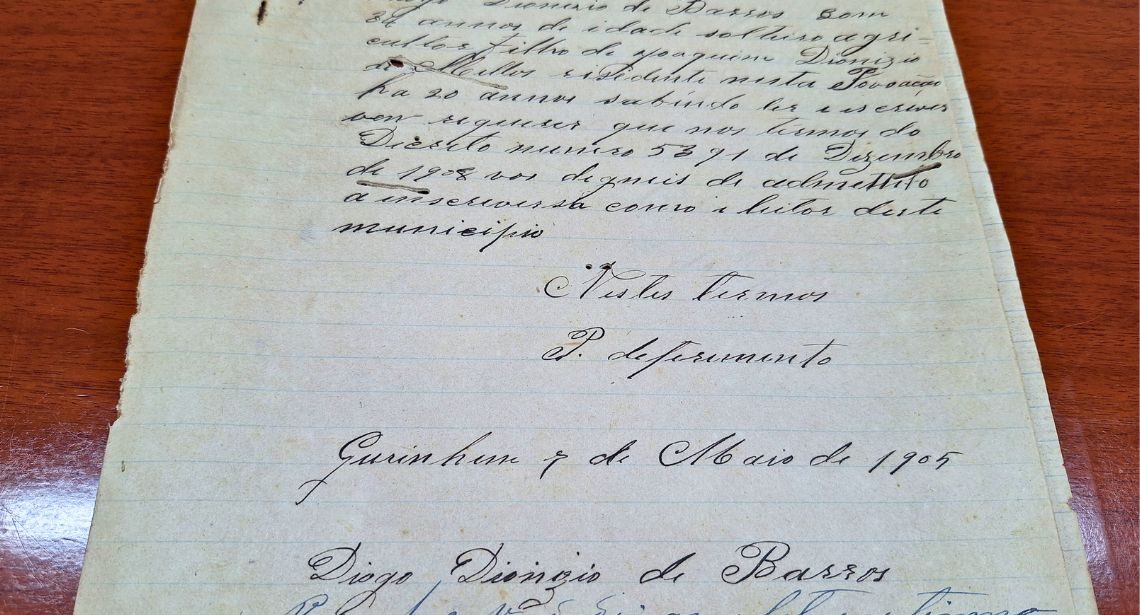 Diogo Dionizio de Barros com
annos de idade solteiro agri-
cultor filho de Joaquim Dionizio
de Mello residente nesta Povoação
ha 20 annos sabindo ler e escriver
ven requerer que nos termos do
Decreto numero 5391 de Dezembro
de 1908 vos digneis de admettilo
a inscriversa como i leitor deste
municipio
Nestes termos
P. deferimento
Gurinhem 7 de Maio de 1905
Diogo Dionizio de Barros